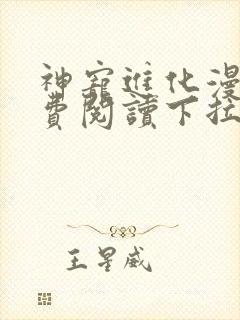 神寵進化漫
費閱讀下拉
王星威